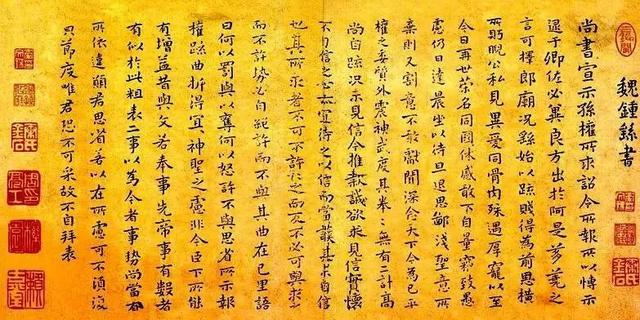 魏鍾繇書
尚書宣示孫權所求詔令所報所以博示
逮于卿佐必冀良方出於阿是芻蕘之
言可擇郎廟況繇始以疏賤得為前恩橫
所盼睨公私見異愛同骨肉殊遇厚寵以至
今日再世榮名同國休慼敢不自量竊致愚
慮仍日達晨坐以待旦退思鄙淺聖意所
棄則又割意不敢獻聞深念天下今為已平
權之委質外震神武度其拳拳無有二計高
尚自疏況未見信今推款誠欲求見信實懷
不自信之心亦宜待之以信而當護其未自信
也其所求者不可不許許之而反不必可與求之
而不許勢必自絕許而不與其曲在己里語
曰何以罰與以奪何以怒許不與思省所示報
權疏曲折得宜神聖之慮非今臣下所能
有增益昔與文若奉事先帝事有數者
有似於此粗表二事以為今者事勢尚當有
所依違願君思省若以在所慮可不須復
只節度唯君恐不可采故不自拜表